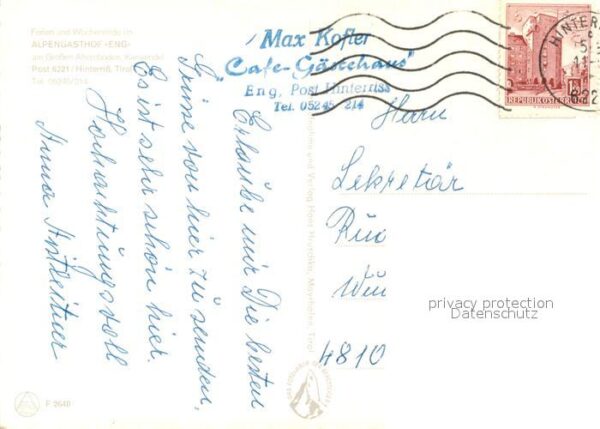 Ferien und Wochenende im
ALPENGASTHOF «ENG»
am Großen Ahornboden, Karwendel
Post 6221 / Hinterriß, Tirol
Tel. 05245/214
Max Kofler
"Cafe-Gästehaus"
Eng, Post Hinterriss
Tel. 05245 214
HINTERR
5
11
622
REPUBLIK ÖSTERREICH
Erlaube mir Die besten
Grüsse von hier zu senden,
Es ist sehr schön hier.
Hochachtungsvoll
Anna
Herrn
Sekretär
4810
privacy protection
Datenschutz
F 2640